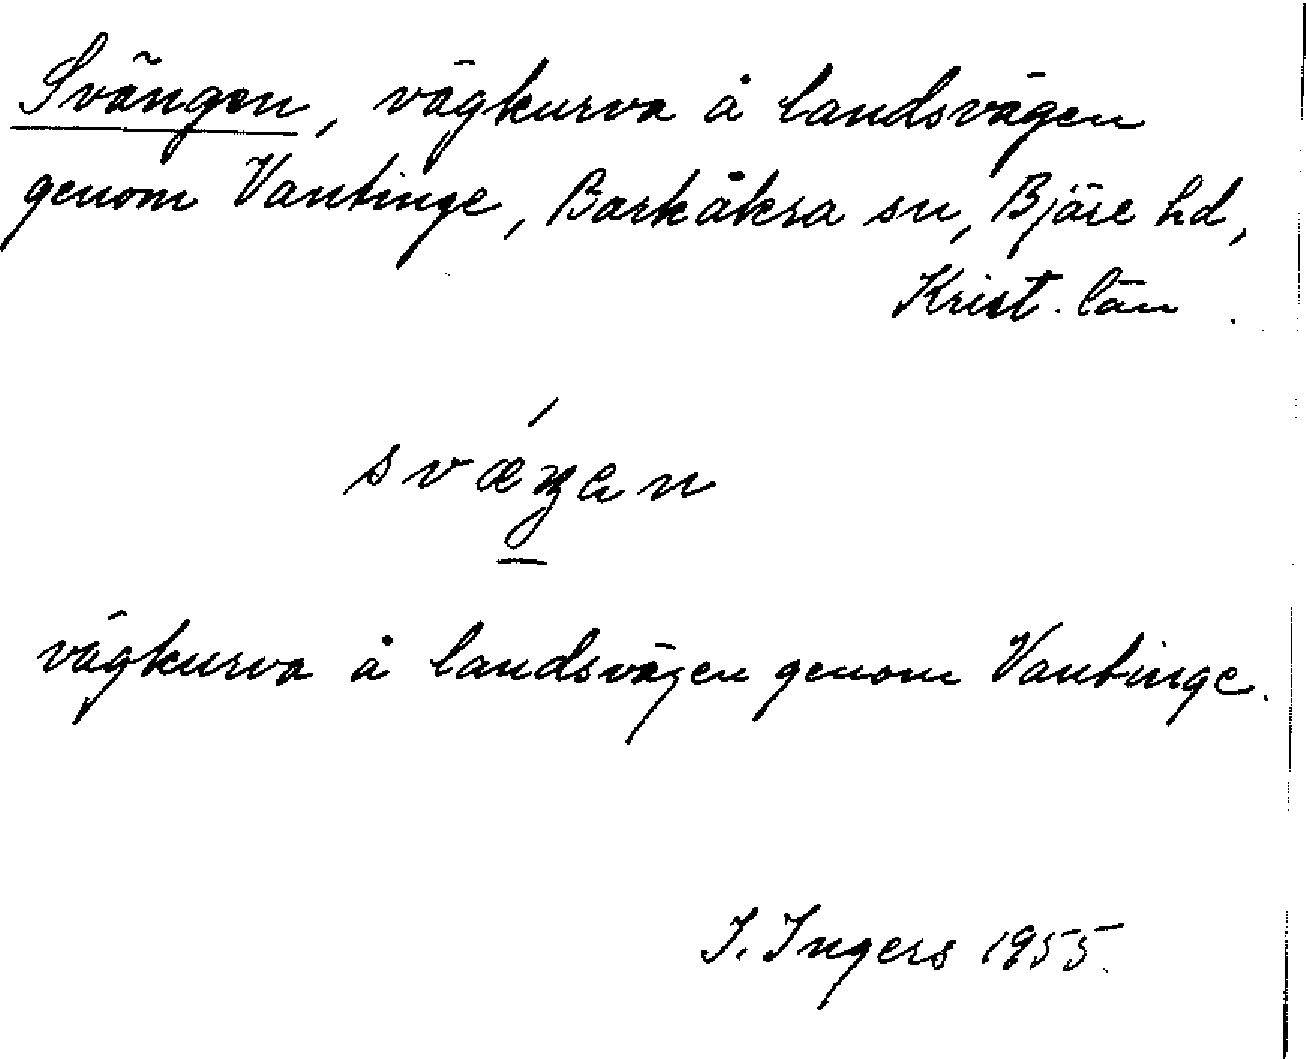 Svängen, vägkurva å landsvägen
genom Vantinge, Barkåkra sn, Bjäre hd,
Krist. län.
vägkurva å landsvägen genom Vantinge.
I. Ingers 1955.